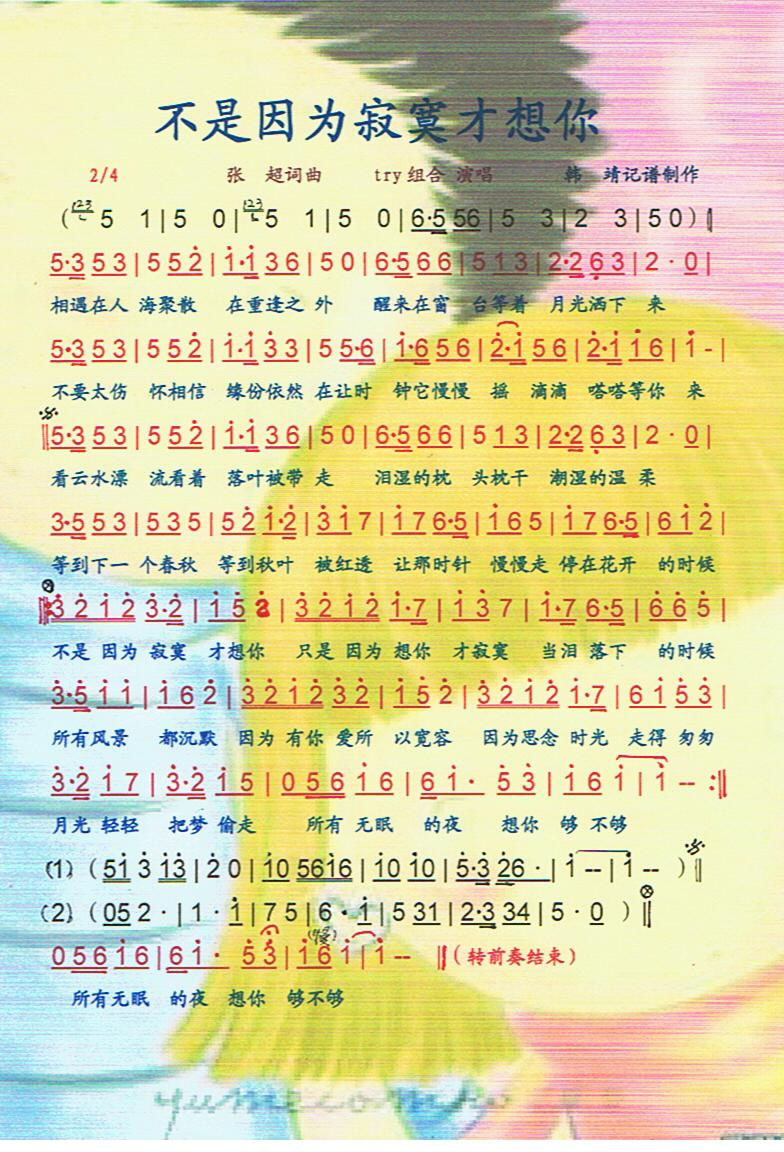 不是因为寂寞才想你
2/4 张 超词曲 try组合 演唱 韩 靖记谱制作
(123 5 1|5 0|123 5 1|5 0|6·5 56|5 3|2 3|50)‖
5·3 5 3|5 5 2̇|1̇·1̇ 3 6|5 0|6·5 6 6|5 1 3|2·2 6̣ 3|2·0|
相遇在人 海聚散 在重逢之 外 醒来在窗 台等着 月光洒下 来
5·3 5 3|5 5 2̇|1̇·1̇ 3̇ 3|5 5·6|1̇·6 5 6|2̇·1̇ 5 6|2̇·1̇ 1̇ 6|1̇ -|
不要太伤 怀相信 缘份依然 在让时 钟它慢慢 摇 滴滴 嗒嗒等你 来
‖5·3 5 3|5 5 2̇|1̇·1̇ 3 6|5 0|6·5 6 6|5 1 3|2·2 6̣ 3|2·0|
看云水漂 流看着 落叶被带 走 泪湿的枕 头枕干 潮湿的温 柔
3·5 5 3|5 3 5|5 2̇ 1̇·2̇|3̇ 1̇ 7|1̇ 7 6·5|1̇ 6 5|1̇ 7 6·5|6 1̇ 2̇|
等到下一 个春秋 等到秋叶 被红透 让那时针 慢慢走 停在花开 的时候
‖:3̇ 2̇ 1̇ 2̇ 3̇·2̇|1̇ 5 2|3̇ 2̇ 1̇ 2̇ 1̇·7|1̇ 3̇ 7|1̇·7 6·5|6 6 5|
不是 因为 寂寞 才想你 只是 因为 想你 才寂寞 当泪 落下 的时候
3̇·5̇ 1̇ 1̇|1̇ 6 2̇|3̇ 2̇ 1̇ 2̇ 3̇ 2̇|1̇ 5 2̇|3̇ 2̇ 1̇ 2̇ 1̇·7|6 1̇ 5̇ 3̇|
所有风景 都沉默 因为 有你 爱所 以宽容 因为思念 时光 走得 匆匆
3̇·2̇ 1̇ 7|3̇·2̇ 1̇ 5|0 5 6 1̇ 6|6 1̇· 5̇ 3̇|1̇ 6 1̇|1̇ -- :‖
月光 轻轻 把梦 偷走 所有 无眠 的夜 想你 够 不够
(1) (51̇ 3̇ 1̇3̇|2̇ 0|1̇0 561̇6|1̇0 1̇0|5·3̇ 2̇6·|1̇ --|1̇ -- )‖
(2) (05 2·|1·1̇|7 5|6·1̇|5 31|2·3 34|5·0 )‖
0 5 6 1̇ 6|6 1̇· 5̇ 3̇|1̇ 6 1̇|1̇ -- ‖(转前奏结束)
所有无眠 的夜 想你 够不够
yumecomko